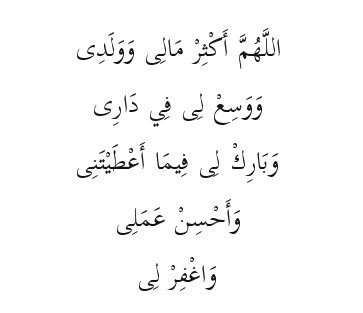 اللَّهُمَّ أَكْثِرْ مَالِى وَوَلَدِى
وَوَسِعْ لِى فِي دَارِى
وَبَارِكْ لِى فِيمَا أَعْطَيْتَنِى
وَأَحْسِنْ عَمَلِى
وَاغْفِرْ لِى